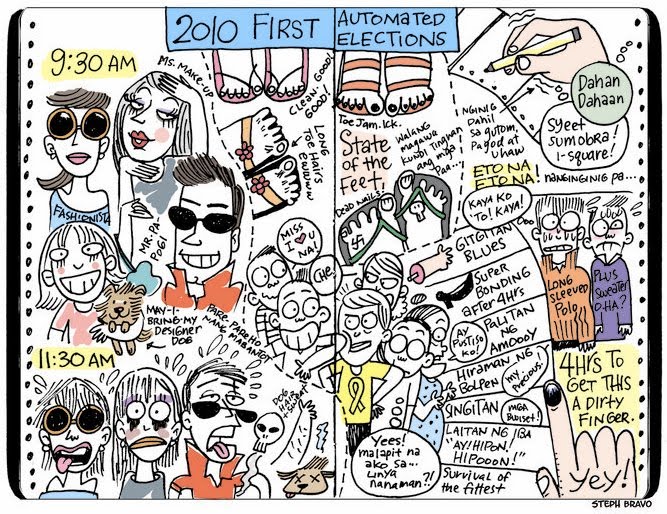 2010 FIRST AUTOMATED
ELECTIONS
9:30 AM
MS. MAKE-UP
FASHIONISTA
MR. PA
POGI
MAY-I-
BRING-MY
DESIGNER
DOG
PARE PAREHO
LANG MABANTOT
11:30 AM
DOG
HAIR
CLEAN. GOOD!
GOOD!
LONG
TOE HAIRS
EWWWWW
MISS
I ♥ U
NA!
CHE.
Toe Jam. Ick.
State
of the
Feet.
Walang
magawa
kundi tingnan
ang mga
Paa!
Dead Nails?
NGINIG
Dahil
sa gutom,
Pagod at
uhaw
Dahan
Dahaan
Syeet
sumobra!
1-square!
ETO NA!
ETO NA!
NANGINGINIG pa...
KAYA KO
TO! KAYA!
GITGITAN
BLUES
Super
BONDING
after 4Hrs
AY
PUSTISO
KO!
PALITAN
NG
AMOOOY
Hiraman ng
Bolpen
my
precious!
SINGITAN
MGA
BWISET!
LAITAN NG IBA
"AY! HIPON!
HIPOOON!"
Survival of
the fittest
Yees!
malapit na
ako sa...
linya
nanaman?!
LONG
SLEEVED
Polo
PLUS
Sweater
O-HA?
4Hrs TO
GET THIS
A DIRTY
FINGER.
yey!
STEPH BRAVO